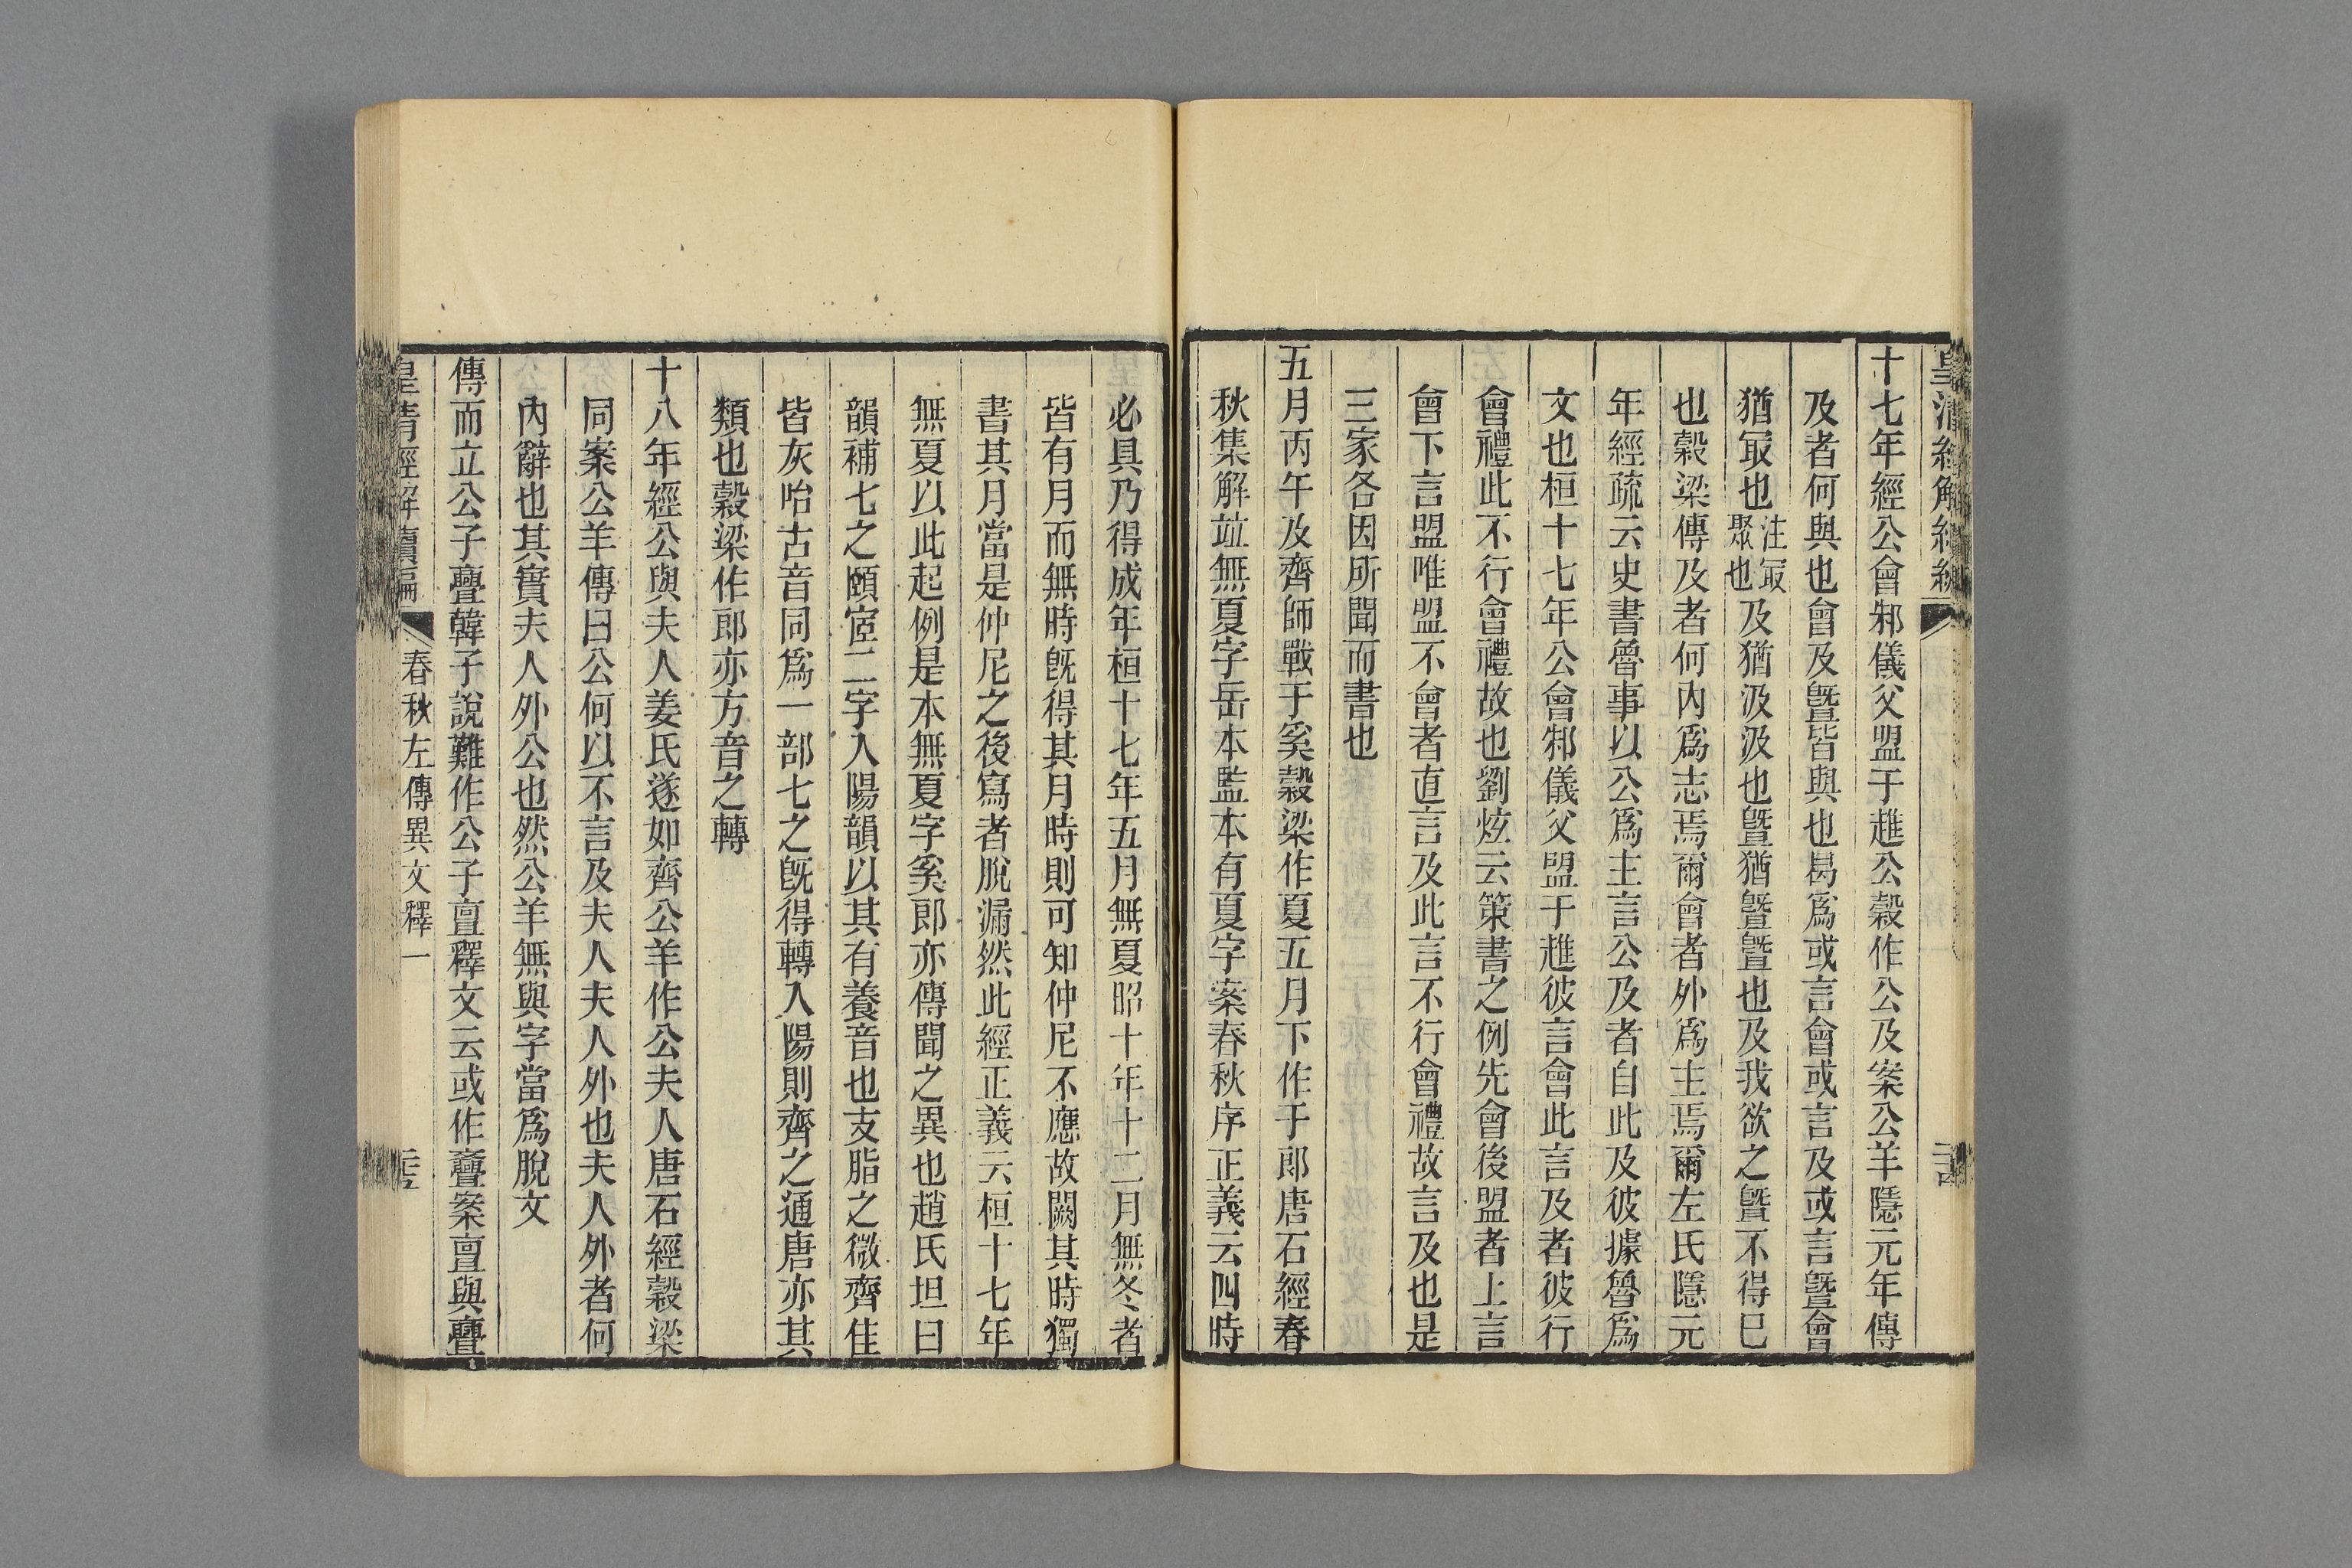 十七年經公會邾儀父盟于趡公穀作公及案公羊隱元年傳
及者何與也會及曁皆與也曷爲或言會或言及或言曁會
猶冣也注冣聚也及猶汲汲也曁猶曁曁也及我欲之曁不得已
也穀梁傳及者何內爲志焉爾會者外爲主焉爾左氏隱元
年經疏云史書魯事以公爲主言公及者自此及彼據魯爲
文也桓十七年公會邾儀父盟于趡彼言會此言及者彼行
會禮此不行會禮故也劉炫云策書之例先會後盟者上言
會下言盟唯盟不會者直言及此言不行會禮故言及也是
三家各因所聞而書也
五月丙午及齊師戰于奚穀梁作夏五月下作于郎唐石經春
秋集解竝無夏字岳本監本有夏字案春秋序正義云四時
必具乃得成年桓十七年五月無夏昭十年十二月無冬者
皆有月而無時旣得其月時則可知仲尼不應故闕其時獨
書其月當是仲尼之後寫者脫漏然此經正義云桓十七年
無夏以此起例是本無夏字奚郎亦傳聞之異也趙氏坦曰
韻補七之頤宧二字入陽韻以其有養音也支脂之微齊佳
皆灰咍古音同爲一部七之旣得轉入陽則齊之通唐亦其
類也穀梁作郎亦方音之轉
十八年經公與夫人姜氏遂如齊公羊作公夫人唐石經穀梁
同案公羊傳曰公何以不言及夫人夫人外也夫人外者何
內辭也其實夫人外公也然公羊無與字當爲脫文
傳而立公子亹韓子說難作公子亶釋文云或作亹案亶與亹
皇清經解續編
春秋左傳異文釋一